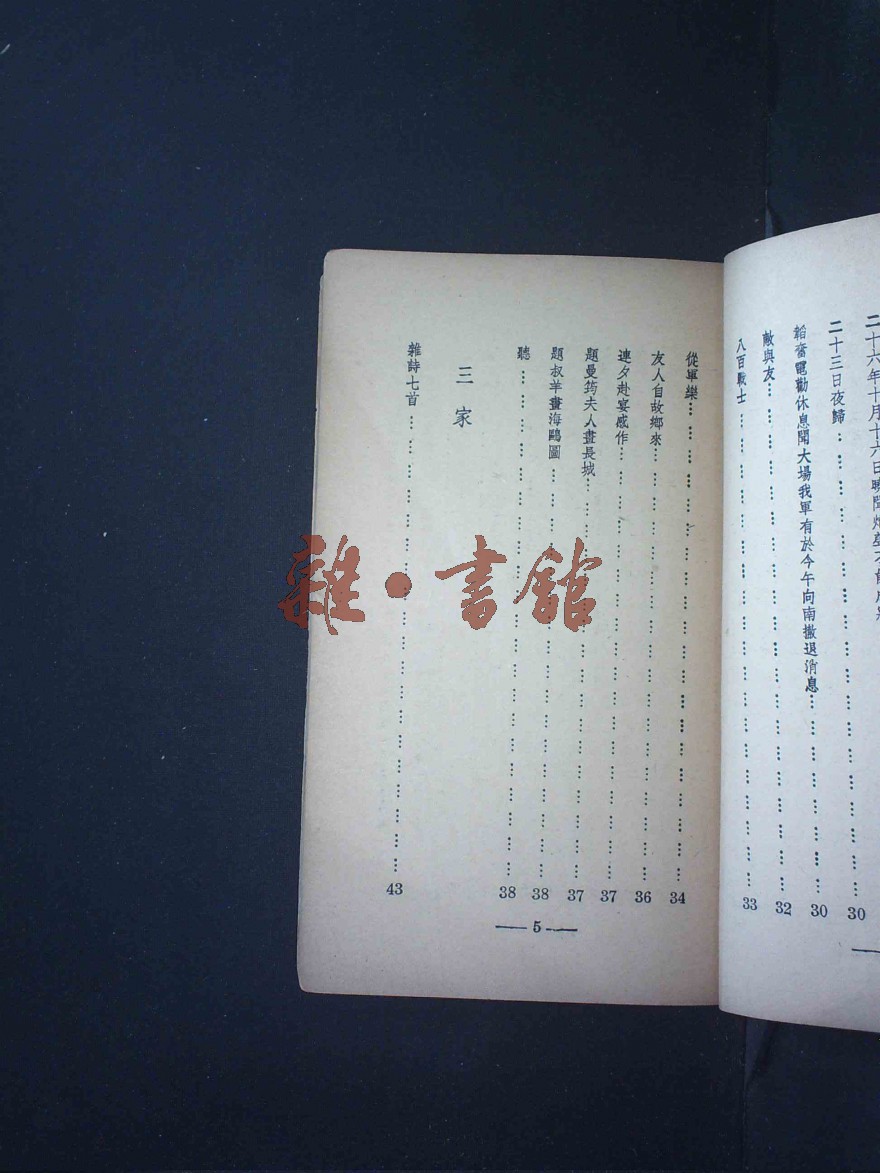 二十六年十月十六日曉聞炮聲不
二十三日夜歸……30
30
韜奮電勸休息聞大場我軍有於今午向南撤退消息……30
敵與友……32
八百戰士……33
從軍樂……34
友人自故鄉來……36
連夕赴宴感作……37
題曼筠夫人畫長城……37
題叔羊畫海鷗圖……38
聽……38
三 家
雜詩七首……43
— 5 —
雜·書館